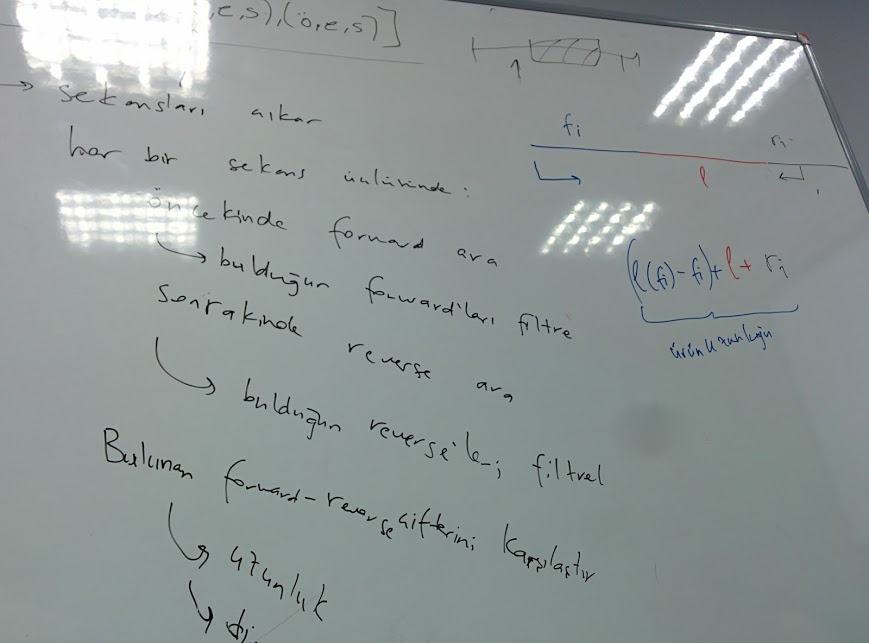 ,e,s),(ö,e,s)]
→ sekansları çıkar
her bir sekans üçlüsünde:
öncekinde forward ara
bulduğun forward'ları filtre
sonrakinde reverse ara
bulduğun reverse'leri filtrel
Bulunan forward-reverse çiftlerini karşılaştır
uzunluk
fi
ri
l
(l(fi)-fi)+l+ri
ürün uzunluğu